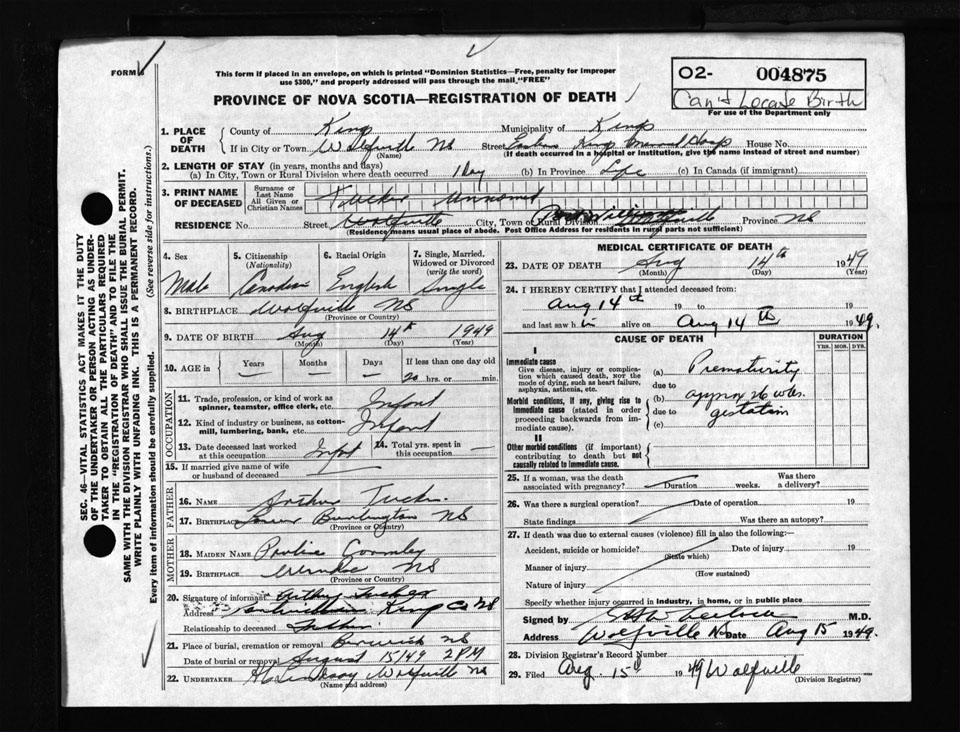 FORM
This form if placed in an envelope, on which is printed "Dominion Statistics—Free, penalty for improper
use $300," and properly addressed will pass through the mail "FREE"
PROVINCE OF NOVA SCOTIA—REGISTRATION OF DEATH
O2- 004875
Can't Locate Birth
For use of the Department only
SEC. 46—VITAL STATISTICS ACT MAKES IT THE DUTY
OF THE UNDERTAKER OR PERSON ACTING AS UNDER-
TAKER TO OBTAIN ALL THE PARTICULARS REQUIRED
IN THE "REGISTRATION OF DEATH" AND TO FILE THE
SAME WITH THE DIVISION REGISTRAR WHO SHALL ISSUE THE BURIAL PERMIT.
WRITE PLAINLY WITH UNFADING INK. THIS IS A PERMANENT RECORD.
Every item of information should be carefully supplied. (See reverse side for instructions.)
1. PLACE OF DEATH
County of Kings Municipality of Kings
If in City or Town Wolfville NS Street Eastern Kings Memorial Hosp House No.
(Name) (If death occurred in a hospital or institution, give the name instead of street and number)
2. LENGTH OF STAY (in years, months and days)
(a) In City, Town or Rural Division where death occurred 1 Day (b) In Province Life (c) In Canada (if immigrant)
3. PRINT NAME OF DECEASED
Surname or Last Name
All Given or Christian Names
Tucker Unnamed
RESIDENCE No. Street Wolfville City, Town or Rural Division Province NS
(Residence means usual place of abode. Post Office Address for residents in rural parts not sufficient)
4. Sex
Male
5. Citizenship
(Nationality)
Canadian
6. Racial Origin
English
7. Single, Married,
Widowed or Divorced
(write the word)
Single
8. BIRTHPLACE Wolfville NS
(Province or Country)
9. DATE OF BIRTH Aug 14th 1949
(Month) (Day) (Year)
10. AGE in Years Months Days If less than one day old
20 hrs. or min.
OCCUPATION
11. Trade, profession, or kind of work as
spinner, teamster, office clerk, etc. Infant
12. Kind of industry or business, as cotton-
mill, lumbering, bank, etc. Infant
13. Date deceased last worked
at this occupation Infant
14. Total yrs. spent in
this occupation
15. If married give name of wife
or husband of deceased
FATHER
16. Name Arthur Tucker
17. Birthplace Lower Burlington NS
(Province or Country)
MOTHER
18. MAIDEN NAME Pauline Gormley
19. BIRTHPLACE NS
(Province or Country)
20. Signature of informant Arthur Tucker
Address Port Williams Kings Co NS
Relationship to deceased Father
21. Place of burial, cremation or removal Berwick NS
Date of burial or removal August 15/49 2 PM
22. UNDERTAKER Lindsay Wolfville NS
(Name and address)
MEDICAL CERTIFICATE OF DEATH
23. DATE OF DEATH Aug 14th 1949
(Month) (Day) (Year)
24. I HEREBY CERTIFY that I attended deceased from:
Aug 14th 19 to 19
and last saw him alive on Aug 14th 1949.
CAUSE OF DEATH
DURATION
YRS. MOS. DYS.
I
Immediate cause
Give disease, injury or complica-
tion which caused death, not the
mode of dying, such as heart failure,
asphyxia, asthenia, etc.
(a) Prematurity
due to
Morbid conditions, if any, giving rise to
immediate cause (stated in order
proceeding backwards from im-
mediate cause).
(b) approx 26 wks.
due to gestation
(c)
II
Other morbid conditions (if important)
contributing to death but not
causally related to immediate cause.
25. If a woman, was the death
associated with pregnancy? Duration weeks. Was there
a delivery?
26. Was there a surgical operation? Date of operation 19
State findings Was there an autopsy?
27. If death was due to external causes (violence) fill in also the following:—
Accident, suicide or homicide? Date of injury 19
(State which)
Manner of injury
(How sustained)
Nature of injury
Specify whether injury occurred in industry, in home, or in public place
Signed by M.D.
Address Wolfville NS Date Aug 15 1949.
28. Division Registrar's Record Number
29. Filed Aug. 15th 1949 Wolfville
(Division Registrar)